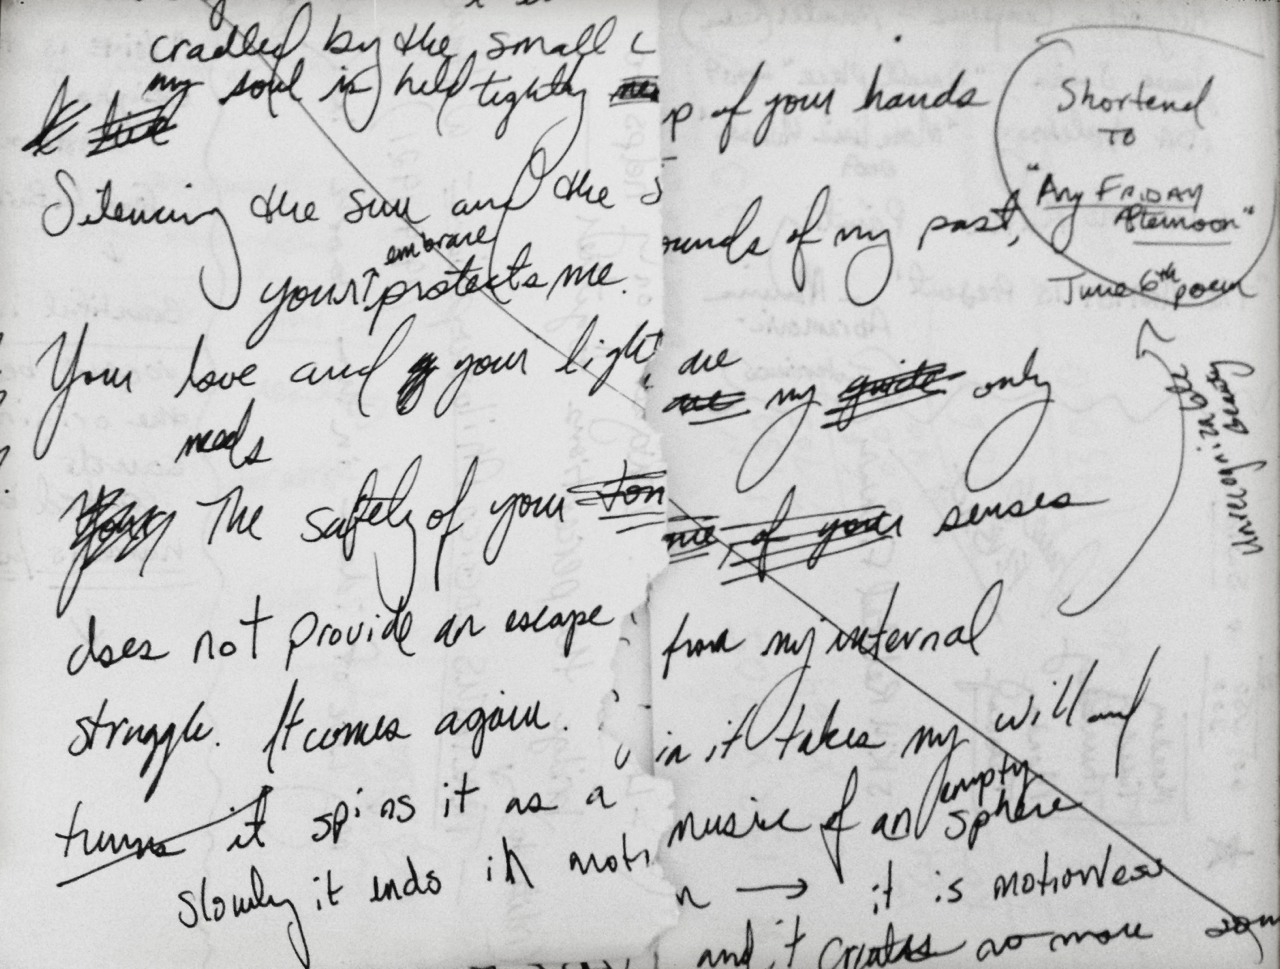 cradled by the small
my soul is held tightly
p of your hands
Silencing the sun and the s
ounds of my past,
embrace
your protects me.
Your love and your light are my guide only
needs
The safety of your tone of your senses
does not provide an escape from my internal
struggle. It comes again. in it takes my will and
turns it spins it as a music of an empty sphere
slowly it ends in moti n → it is motionless
and it creates no more
Shortend
TO
"Any FRIDAY
Afternoon"
June 6th poem
Unrecognizable
Beauty